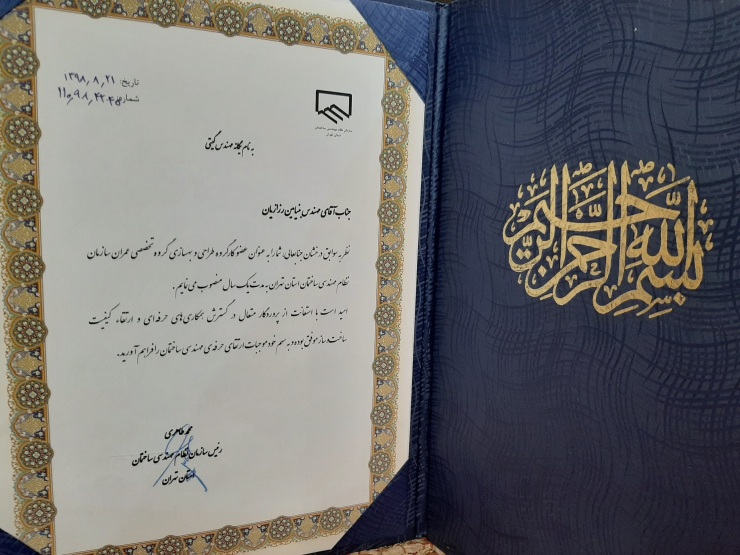 تاریخ: ۱۳۹۸٫۸٫۲۱
شماره:
سازمان نظام مهندسی ساختمان
استان تهران
به نام یگانه مهندس گیتی
جناب آقای مهندس بنیامین رزازیان
نظر به سوابق درخشان جنابعالی، شما را به عنوان عضو کارگروه طراحی و بهسازی گروه تخصصی عمران سازمان
نظام مهندسی ساختمان استان تهران به مدت یک سال منصوب می نمایم.
امید است با استعانت از پروردگار متعال در گسترش همکاری های حرفه ای و ارتقاء کیفیت
ساخت و ساز موفق بوده و به سهم خود موجبات ارتقای حرفه ی مهندسی ساختمان را فراهم آورید.
محمد طاهری
رئیس سازمان نظام مهندسی ساختمان
استان تهران
بسم الله الرحمن الرحیم